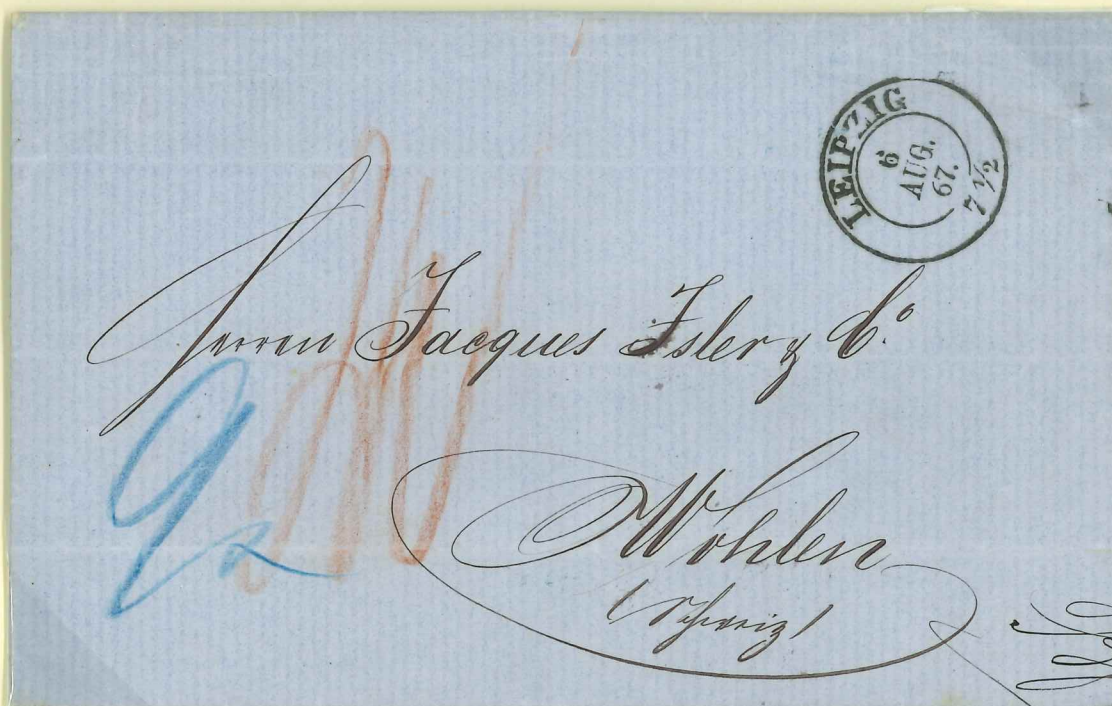 LEIPZIG
6
AUG.
67.
7 1/2
Herren Jacques Isler & Cº.
Wohlen
(Schweiz)